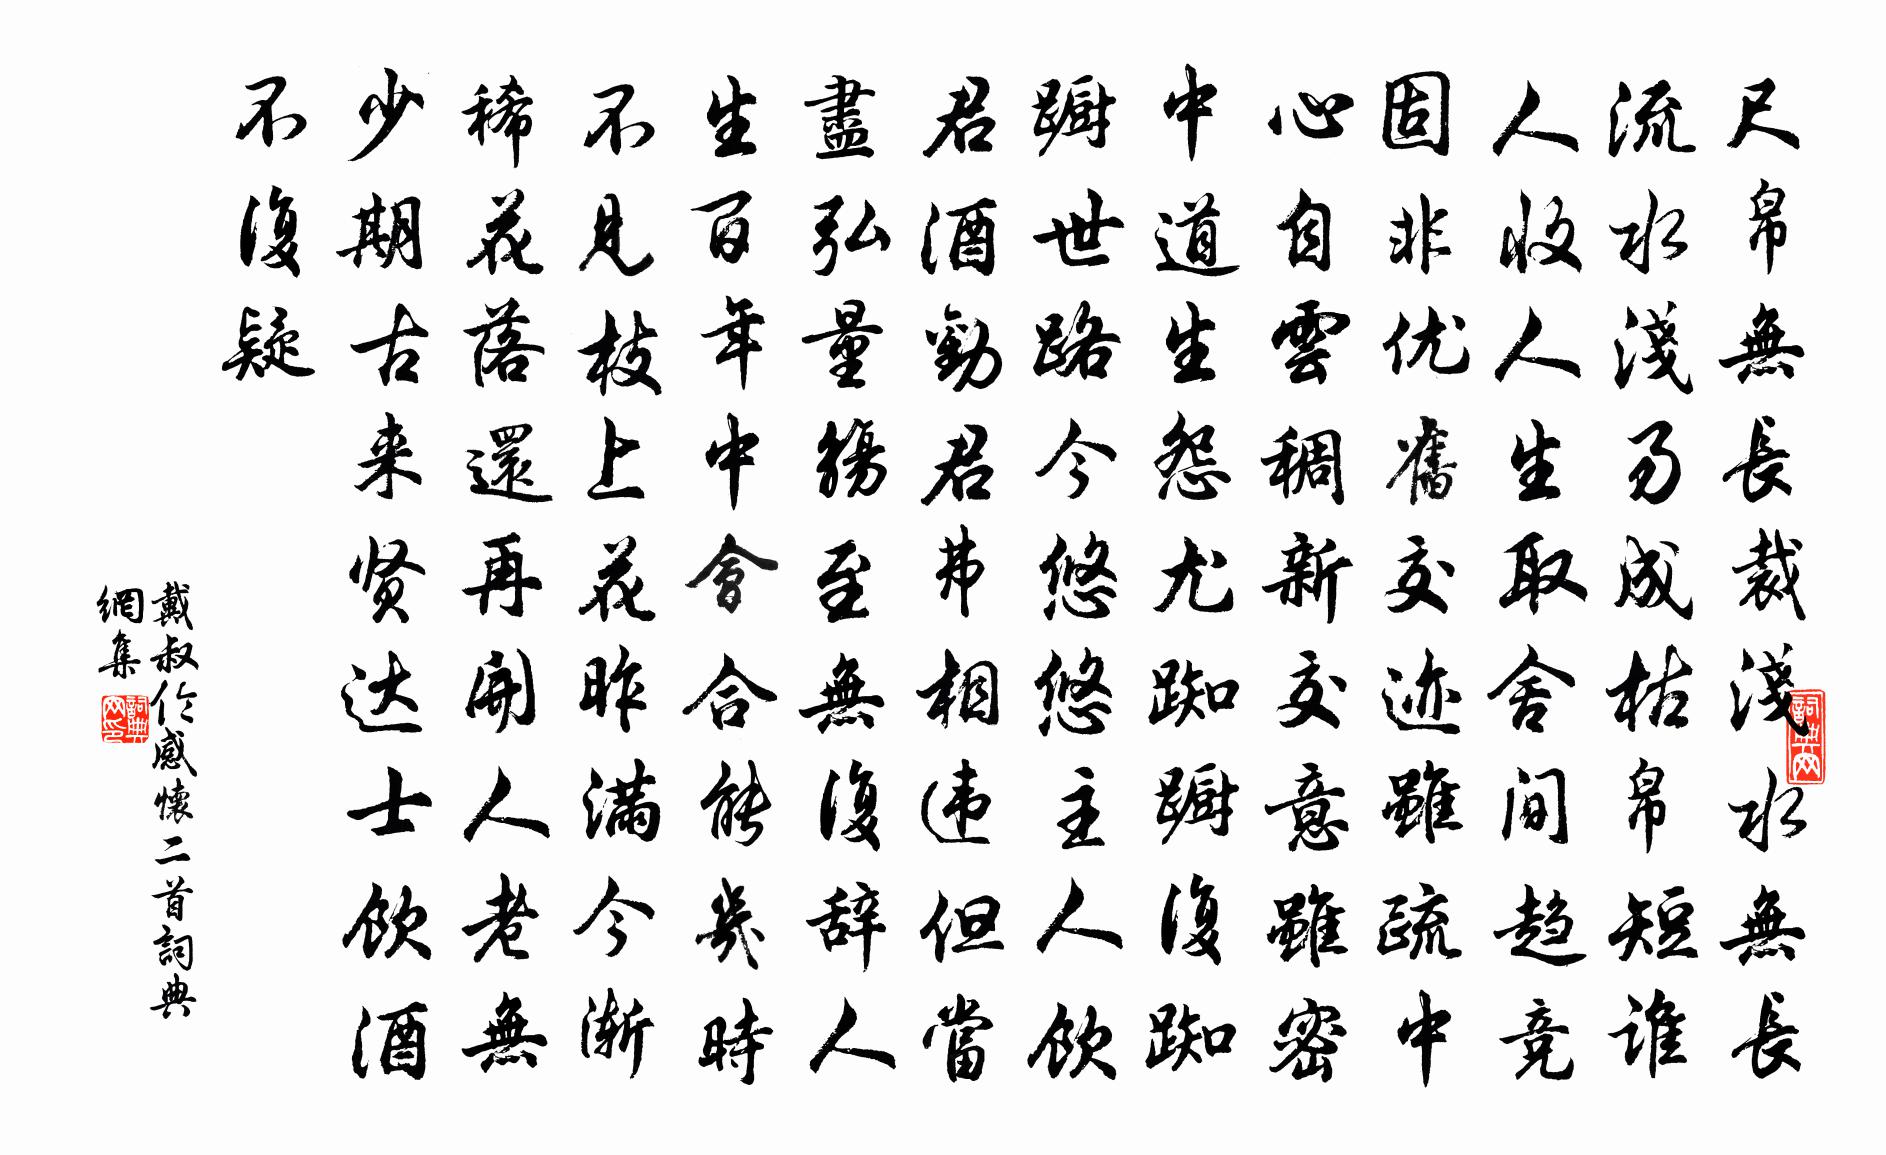 尺帛無長裁淺水無長
流水淺易成枯帛短誰
人收人生取舍间趋竞
固非优舊交迹雖疏中
心自雲稠新交意雖密
中道生怨尤踟蹰復踟
蹰世路今悠悠主人饮
君酒勸君君弗相违但當
盡弘量觴至無復辞人
生百年中會合能幾時
不見枝上花昨滿今渐
稀花落還再開人老無
少期古来贤达士饮酒
不復疑
戴叔伦感懷二首詞典
網集
詞典网
詞典网印